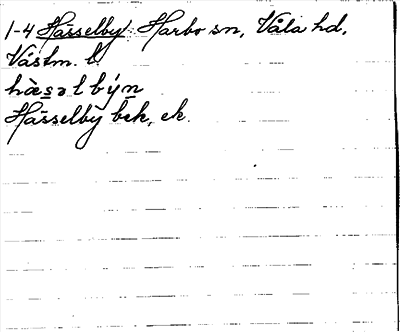 1-4 Hässelby: Harbo sn, Våla hd,
Västm. l.
hὰsəlbýn
Hässelby bek, ek.